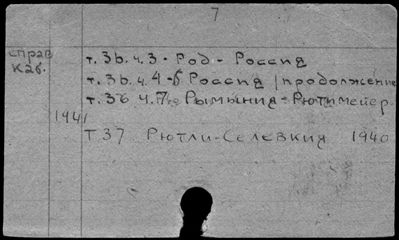 7
справ
каб.
т. 36. ч. 3 - Род - Россия
т. 36. ч. 4-6 Россия / продолжение
т. 36 ч. 7 Румыния - Рютимейер.
1941
Т. 37 Рютли - Селевкия 1940